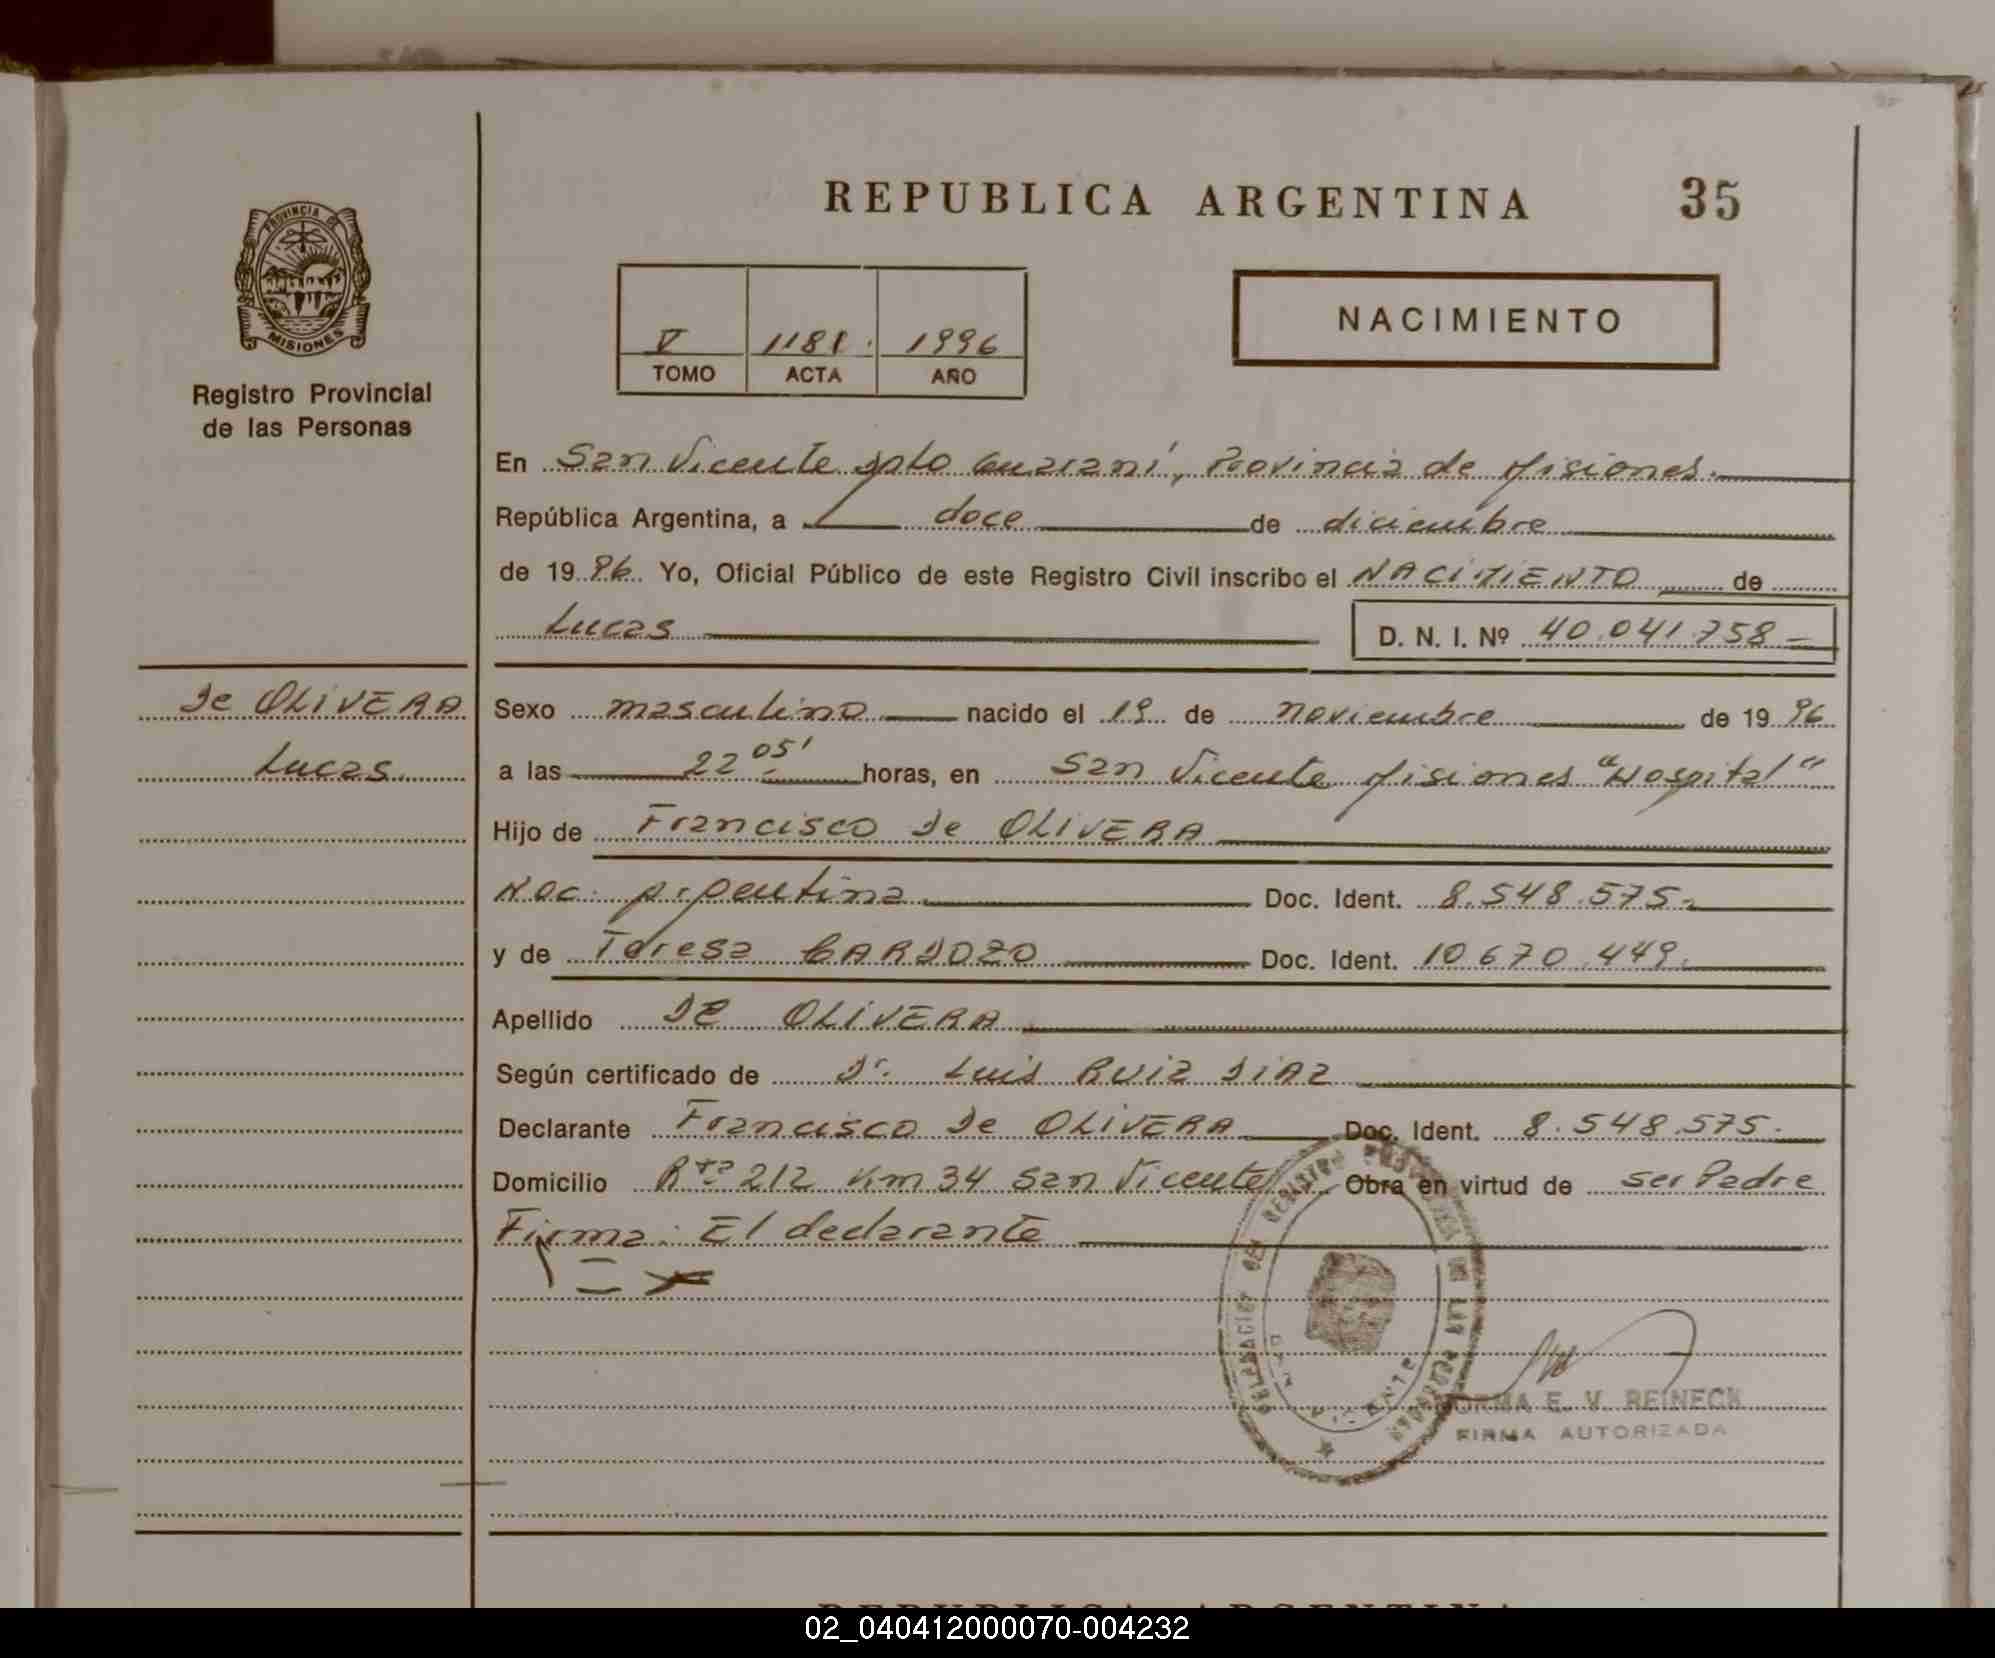 REPUBLICA ARGENTINA 35
PROVINCIA DE
MISIONES
Registro Provincial
de las Personas
V 1181. 1996
TOMO ACTA AÑO
NACIMIENTO
En San Vicente Dpto Guaraní, Provincia de Misiones.
República Argentina, a doce de diciembre
de 1996. Yo, Oficial Público de este Registro Civil inscribo el NACIMIENTO de
Lucas D. N. I. Nº 40.041.758
De OLIVERA
Lucas
Sexo masculino nacido el 19 de noviembre de 1996
a las 22 05' horas, en San Vicente Misiones "Hospital"
Hijo de Francisco De OLIVERA
Nac. Argentina Doc. Ident. 8.548.575
y de Teresa CARDOZO Doc. Ident. 10.670.449.
Apellido DE OLIVERA
Según certificado de Dr. Luis RUIZ DIAZ
Declarante Francisco De OLIVERA Doc. Ident. 8.548.575.
Domicilio Rta 212 Km 34 San Vicente Obra en virtud de ser Padre
Firma: El declarante
DELEGACION DEL REGISTRO PROVINCIAL DE LAS PERSONAS
VICENTE
NORMA E. V. REINECK
FIRMA AUTORIZADA
02_040412000070-004232